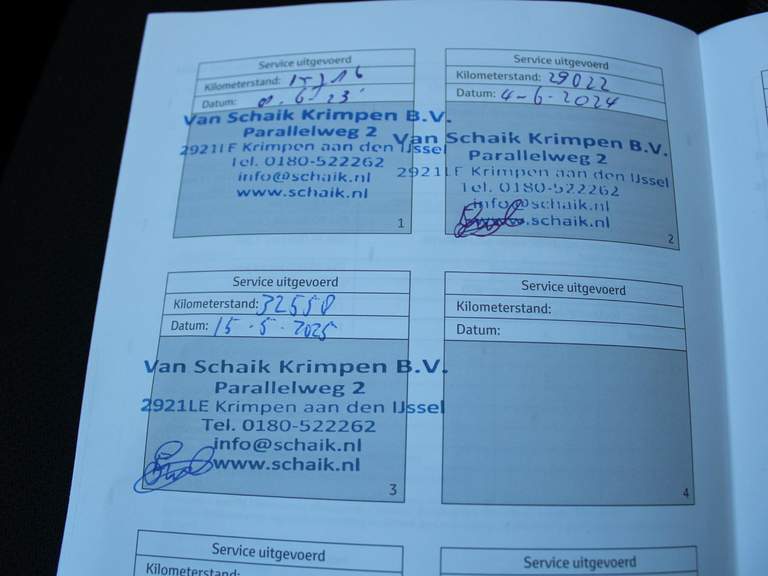 Service uitgevoerd
Kilometerstand:
Datum: 8.6-23
Van Schaik Krimpen B.V.
Parallelweg 2
2921LE Krimpen aan den IJssel
Tel. 0180-522262
info@schaik.nl
www.schaik.nl
1
Service uitgevoerd
Kilometerstand: 29022
Datum: 4-6-2024
Van Schaik Krimpen B.V.
Parallelweg 2
2921LE Krimpen aan den IJssel
Tel. 0180-522262
info@schaik.nl
www.schaik.nl
2
Service uitgevoerd
Kilometerstand: 32550
Datum: 15-5-2025
Van Schaik Krimpen B.V.
Parallelweg 2
2921LE Krimpen aan den IJssel
Tel. 0180-522262
info@schaik.nl
www.schaik.nl
3
Service uitgevoerd
Kilometerstand:
Datum:
4
Service uitgevoerd
Kilometerstand:
Service uitgevoerd